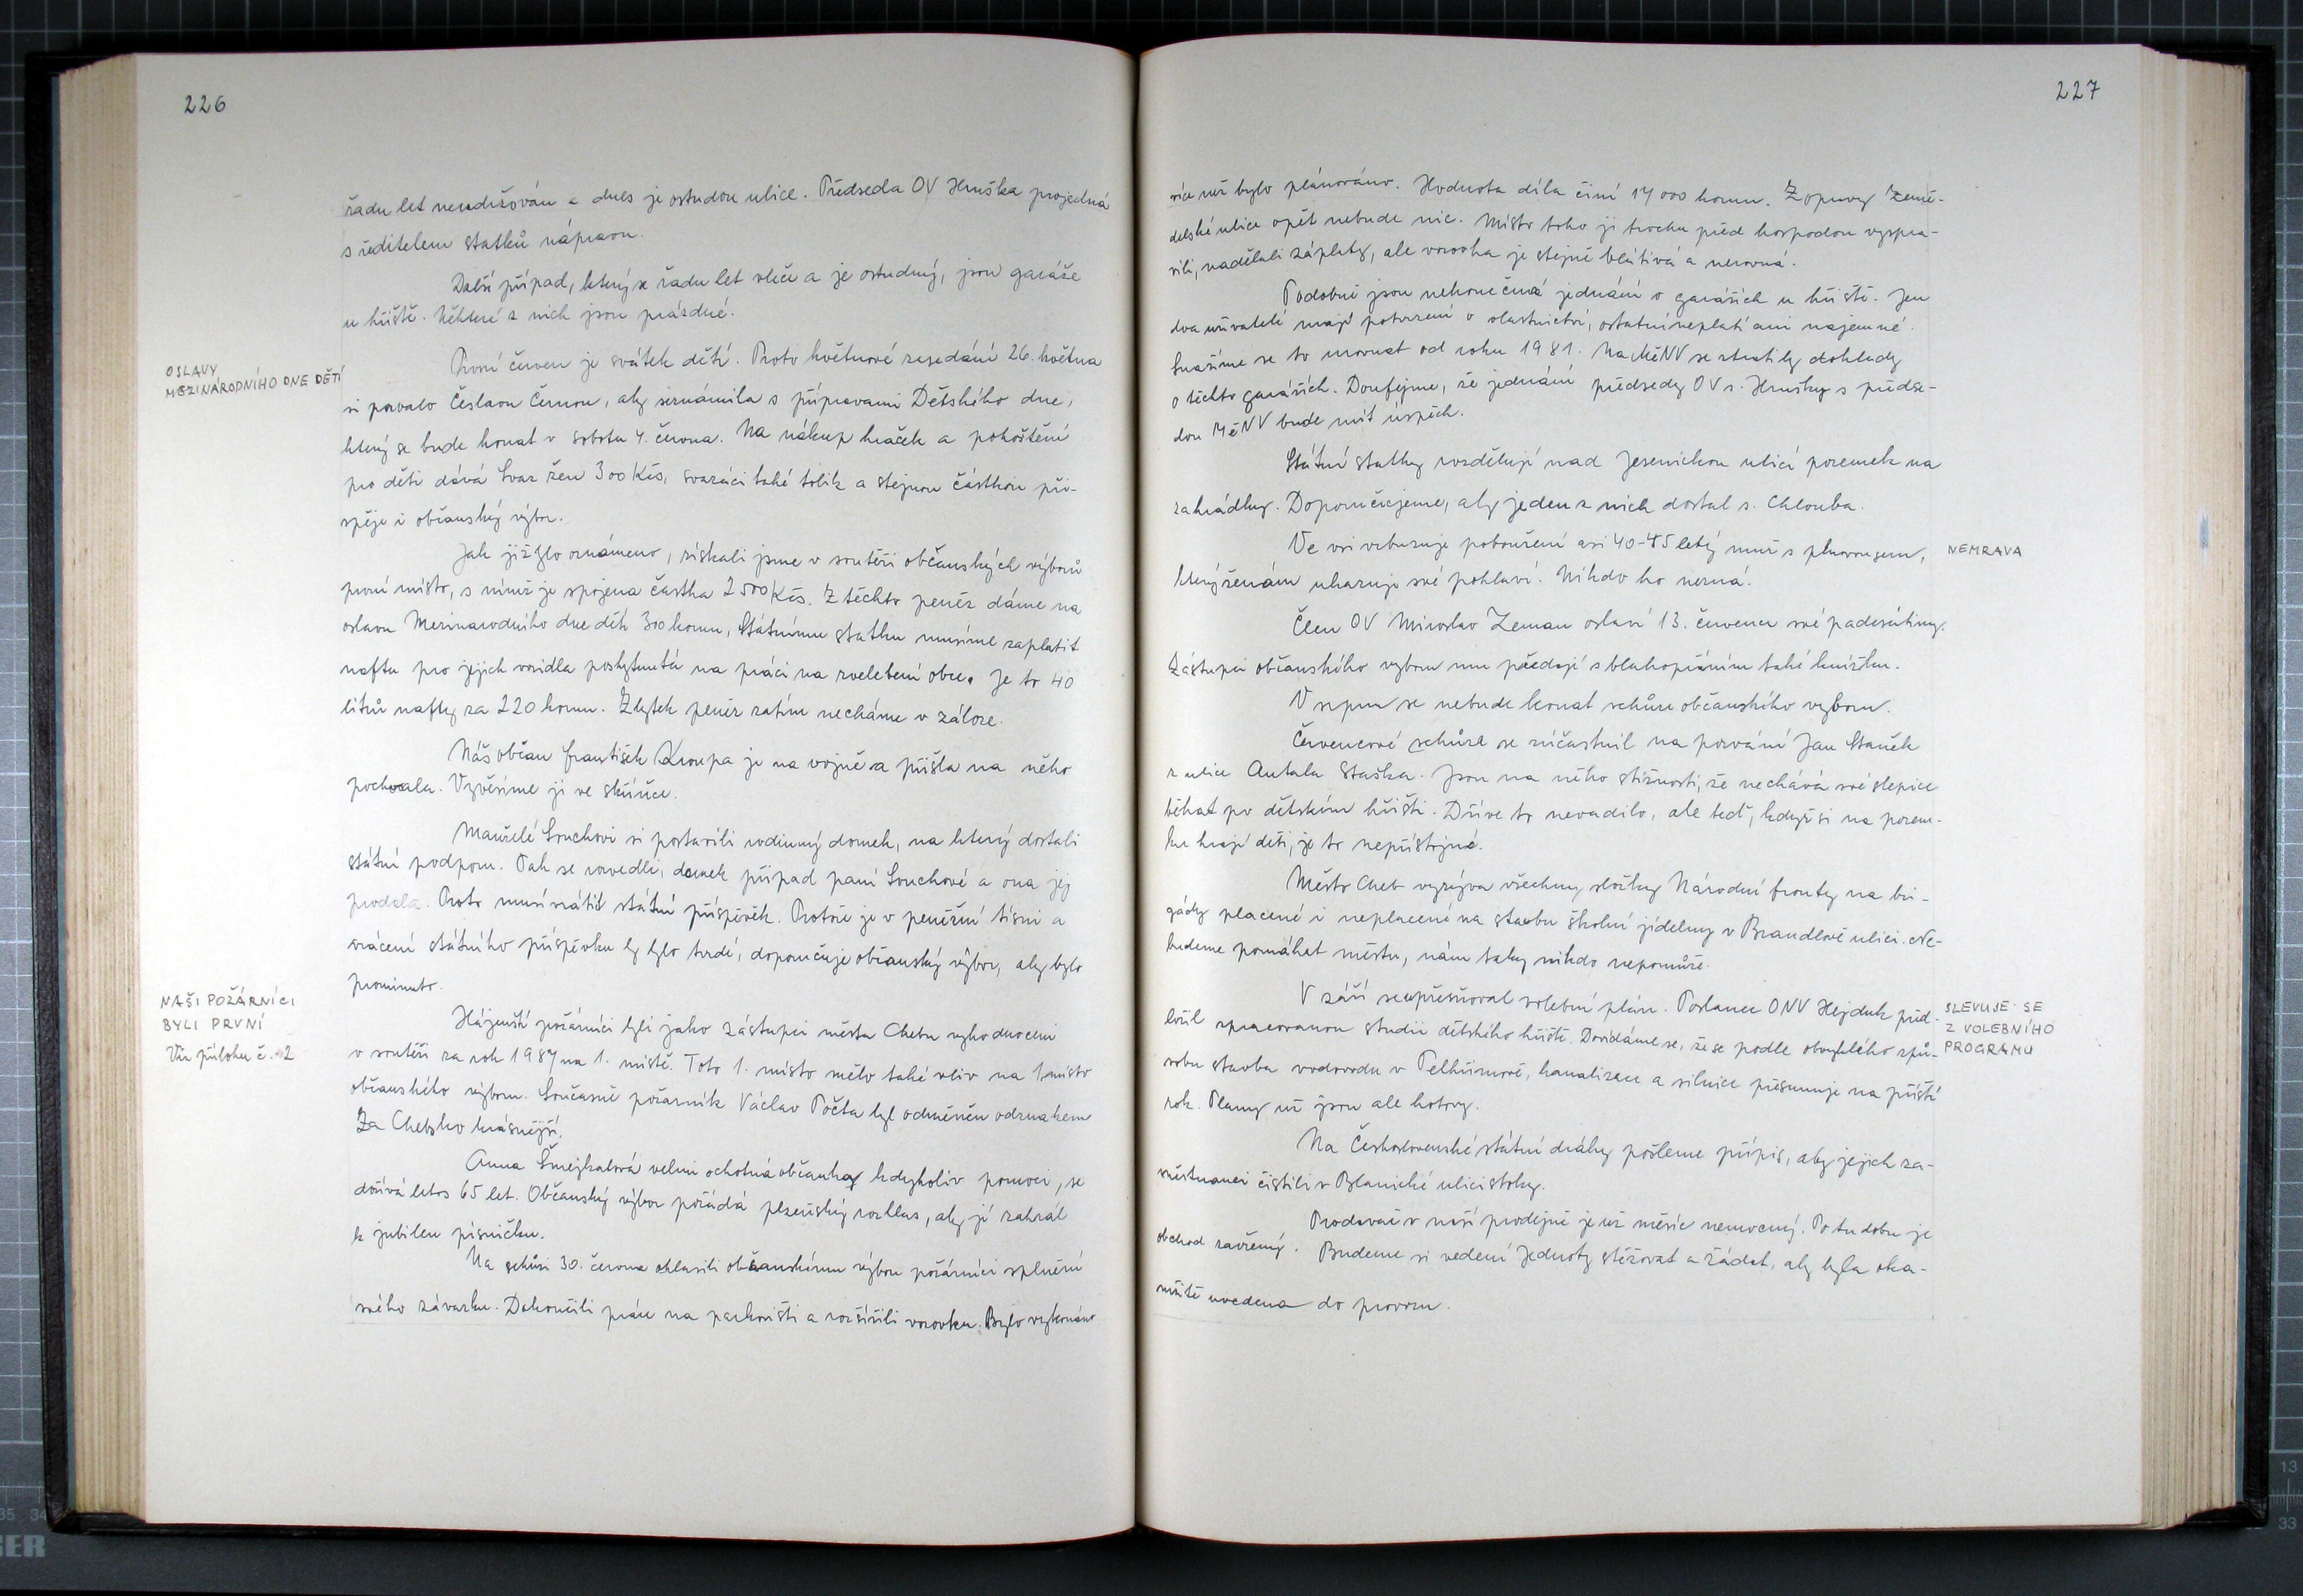 226
řadu let neudržován a dnes je ostudou ulice. Předseda OV Hruška projedná
s ředitelem statků nápravu.
Další případ, který se řadu let vleče a je ostudný, jsou garáže
u hřiště. Některé z nich jsou prázdné.
OSLAVY
MEZINÁRODNÍHO DNE DĚTÍ
První červen je svátek dětí. Proto květnové zasedání 26. května
si pozvalo Česlavu Černou, aby seznámila s přípravami Dětského dne,
který se bude konat v sobotu 4. června. Na nákup hraček a pohoštění
pro děti dává Svaz žen 300 Kčs, svazáci také tolik a stejnou částkou při-
spěje i občanský výbor.
Jak již bylo oznámeno, získali jsme v soutěži občanských výborů
první místo, s nímž je spojena částka 2500 Kčs. Z těchto peněz dáme na
oslavu Mezinárodního dne dětí 300 korun, Státnímu statku musíme zaplatit
naftu pro jejich vozidla poskytnutá na práci na zvelebení obce. Je to 40
litrů nafty za 220 korun. Zbytek peněz zatím necháme v záloze.
Náš občan František Kroupa je na vojně a přišla na něho
pochvala. Vyvěsíme ji ve skříňce.
Manželé Souchovi si postavili rodinný domek, na který dostali
státní podporu. Pak se rozvedli, domek připad paní Souchové a ona jej
prodala. Proto musí vrátit státní příspěvek. Protože je v peněžní tísni a
vrácení státního příspěvku by bylo tvrdé, doporučuje občanský výbor, aby bylo
prominuto.
NAŠI POŽÁRNÍCI
BYLI PRVNÍ
Viz příloha č. 2
Hájenští požárníci byli jako zástupci města Chebu vyhodnoceni
v soutěži za rok 1987 na 1. místě. Toto 1. místo mělo také vliv na 1. místo
občanského výboru. Současně požárník Václav Počta byl odměněn odznakem
Za Chebsko krásnější.
Anna Šmejkalová velmi ochotná občanka kdykoliv pomoci, se
dožívá letos 65 let. Občanský výbor požádá plzeňský rozhlas, aby jí zahrál
k jubileu písničku.
Na schůzi 30. června ohlásili občanskému výboru požárníci splnění
svého závazku. Dokončili práce na parkovišti a rozšířili vozovku. Bylo vykonáno
227
více než bylo plánováno. Hodnota díla činí 17 000 korun. Z opravy Země-
dělské ulice opět nebude nic. Místo toho ji trochu před hospodou vyspra-
vili, nadělali záplaty, ale vozovka je stejně blátivá a nerovná.
Podobně jsou nekonečná jednání o garážích u hřiště. Jen
dva uživatelé mají potvrzení o vlastnictví, ostatní neplatí ani nájemné.
Snažíme se to urovnat od roku 1981. Na MěNV se ztratily doklady
o těchto garážích. Doufejme, že jednání předsedy OV s. Hrušky s předse-
dou MěNV bude mít úspěch.
Státní statky rozdělují nad Jesenickou ulicí pozemek na
zahrádky. Doporučujeme, aby jeden z nich dostal s. Chlouba.
Ve vsi vzbuzuje pobouření asi 40-45 letý muž s plnovousem,
NEMRAVA
který ženám ukazuje své pohlaví. Nikdo ho nezná.
Člen OV Miroslav Zeman oslaví 13. července své padesátiny.
Zástupci občanského výboru mu předají s blahopřáním také knížku.
V srpnu se nebude konat schůze občanského výboru.
Červencové schůze se zúčastnil na pozvání Jan Staněk
z ulice Antala Staška. Jsou na něho stížnosti, že nechává své slepice
běhat po dětském hřišti. Dříve to nevadilo, ale teď, když si na pozem-
ku hrají děti, je to nepřístojné.
Město Cheb vyzývá všechny složky Národní fronty na bri-
gády placené i neplacené na stavbu školní jídelny v Brandlově ulici. Ne-
budeme pomáhat městu, nám taky nikdo nepomůže.
V září se upřesňoval volební plán. Poslanec ONV Hejduk před-
SLEVUJE SE
Z VOLEBNÍHO
PROGRAMU
ložil zpracovanou studii dětského hřiště. Dovídáme se, že se podle obvyklého způ-
sobu stavba vodovodu v Pelhřimově, kanalizace a silnice přesunuje na příští
rok. Plány už jsou ale hotovy.
Na Československé státní dráhy pošleme přípis, aby jejich za-
městnanci čistili v Blanické ulici stoky.
Prodavač v naší prodejně je už měsíc nemocný. Po tu dobu je
obchod zavřený. Budeme si vedení Jednoty stěžovat a žádat, aby byla oka-
mžitě uvedena do provozu.